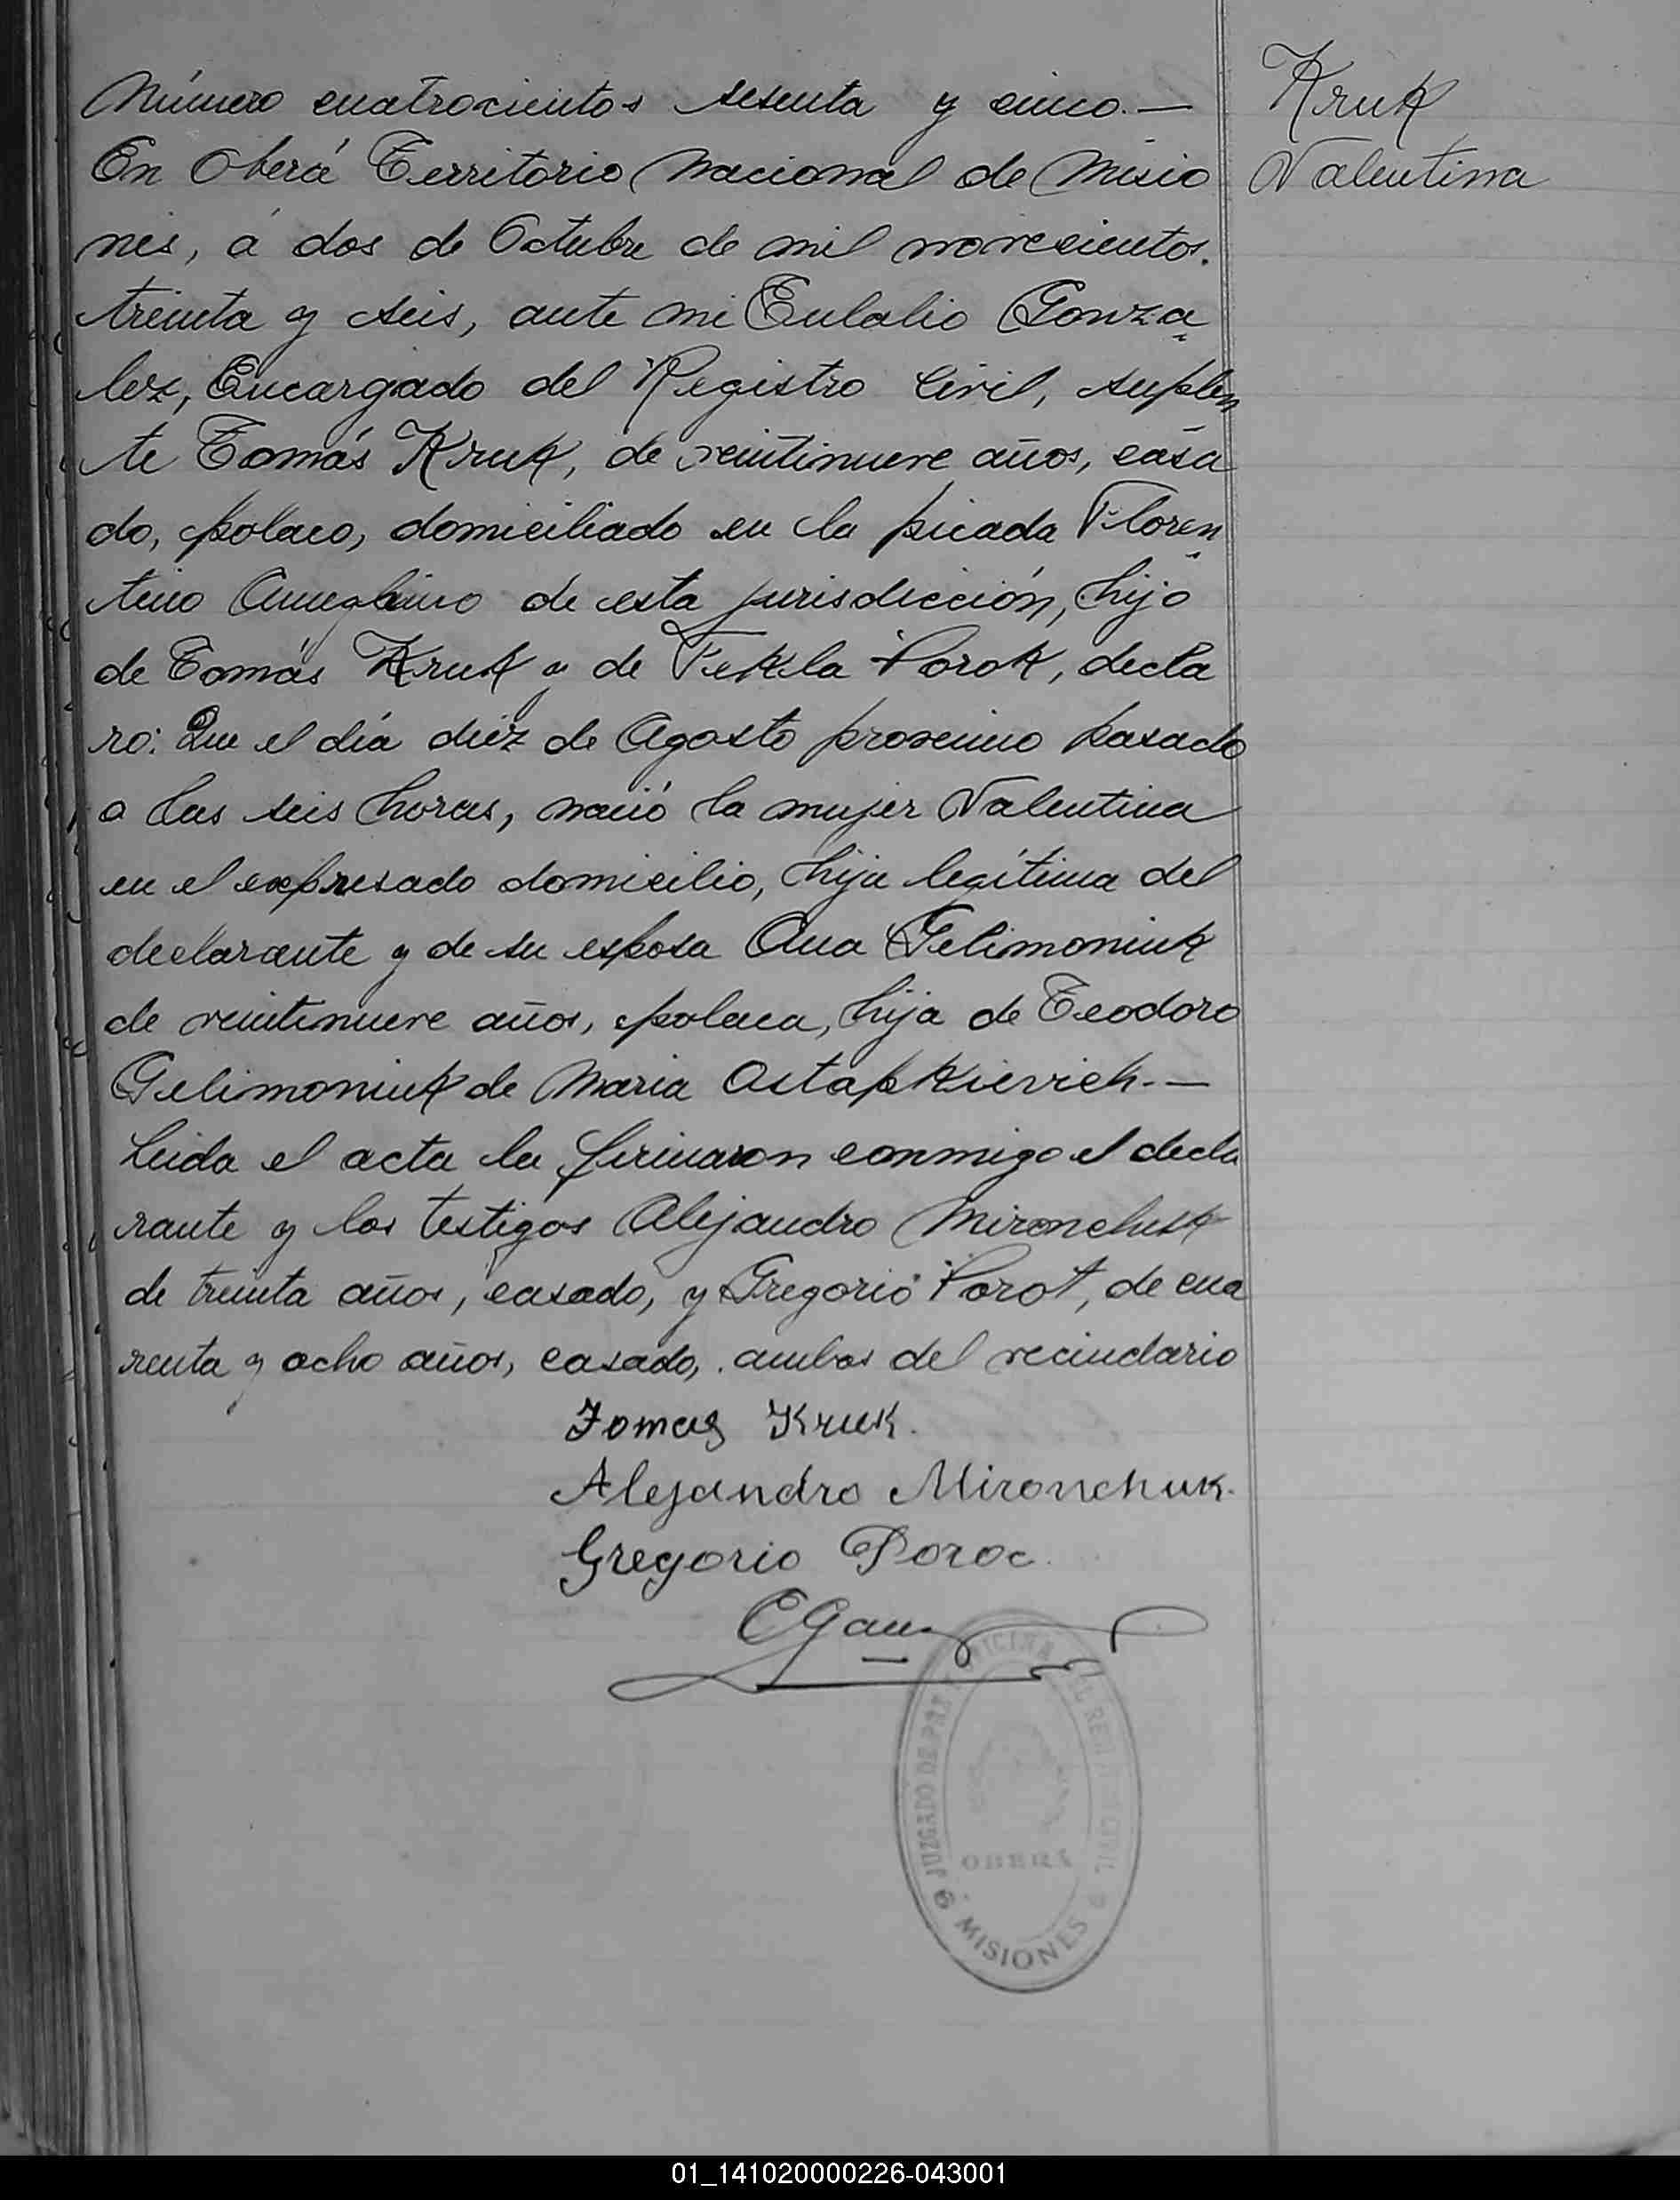 Kruk
Valentina
Número cuatrocientos sesenta y cinco.—
En Oberá Territorio Nacional de Misio
nes, á dos de Octubre de mil novecientos.
treinta y seis, ante mi Eulalio Gonza
lez, Encargado del Registro Civil, suplen
te Tomás Kruk, de veintinueve años, casa
do, polaco, domiciliado en la picada Floren
tino Ameghino de esta jurisdicción, hijo
de Tomás Kruk y de Tekla Porok, decla
ro: Que el día diez de Agosto proximo pasado
a las seis horas, nació la mujer Valentina
en el expresado domicilio, hija legítima del
declarante y de su esposa Ana Gelimoniuk
de veintinueve años, polaca, hija de Teodoro
Gelimoniuk de Maria Ostapkievich.—
Leida el acta la firmaron conmigo el decla
rante y los testigos Alejandro Mironchuk
de treinta años, casado, y Gregorio Porok, de cua
renta y ocho años, casado, ambos del vecindario
Tomas Kruk.
Alejandro Mironchuk.
Gregorio Poroc.
JUZGADO DE PAZ Y OFICINA DEL REGISTRO CIVIL
OBERÁ
MISIONES
01_141020000226-043001